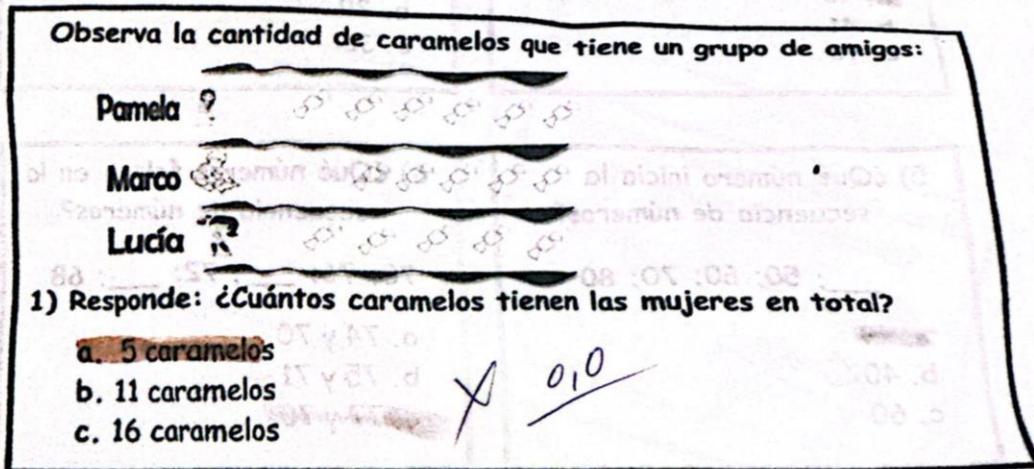 Observa la cantidad de caramelos que tiene un grupo de amigos:
Pamela
Marco
Lucía
1) Responde: ¿Cuántos caramelos tienen las mujeres en total?
a. 5 caramelos
b. 11 caramelos
c. 16 caramelos
0,0